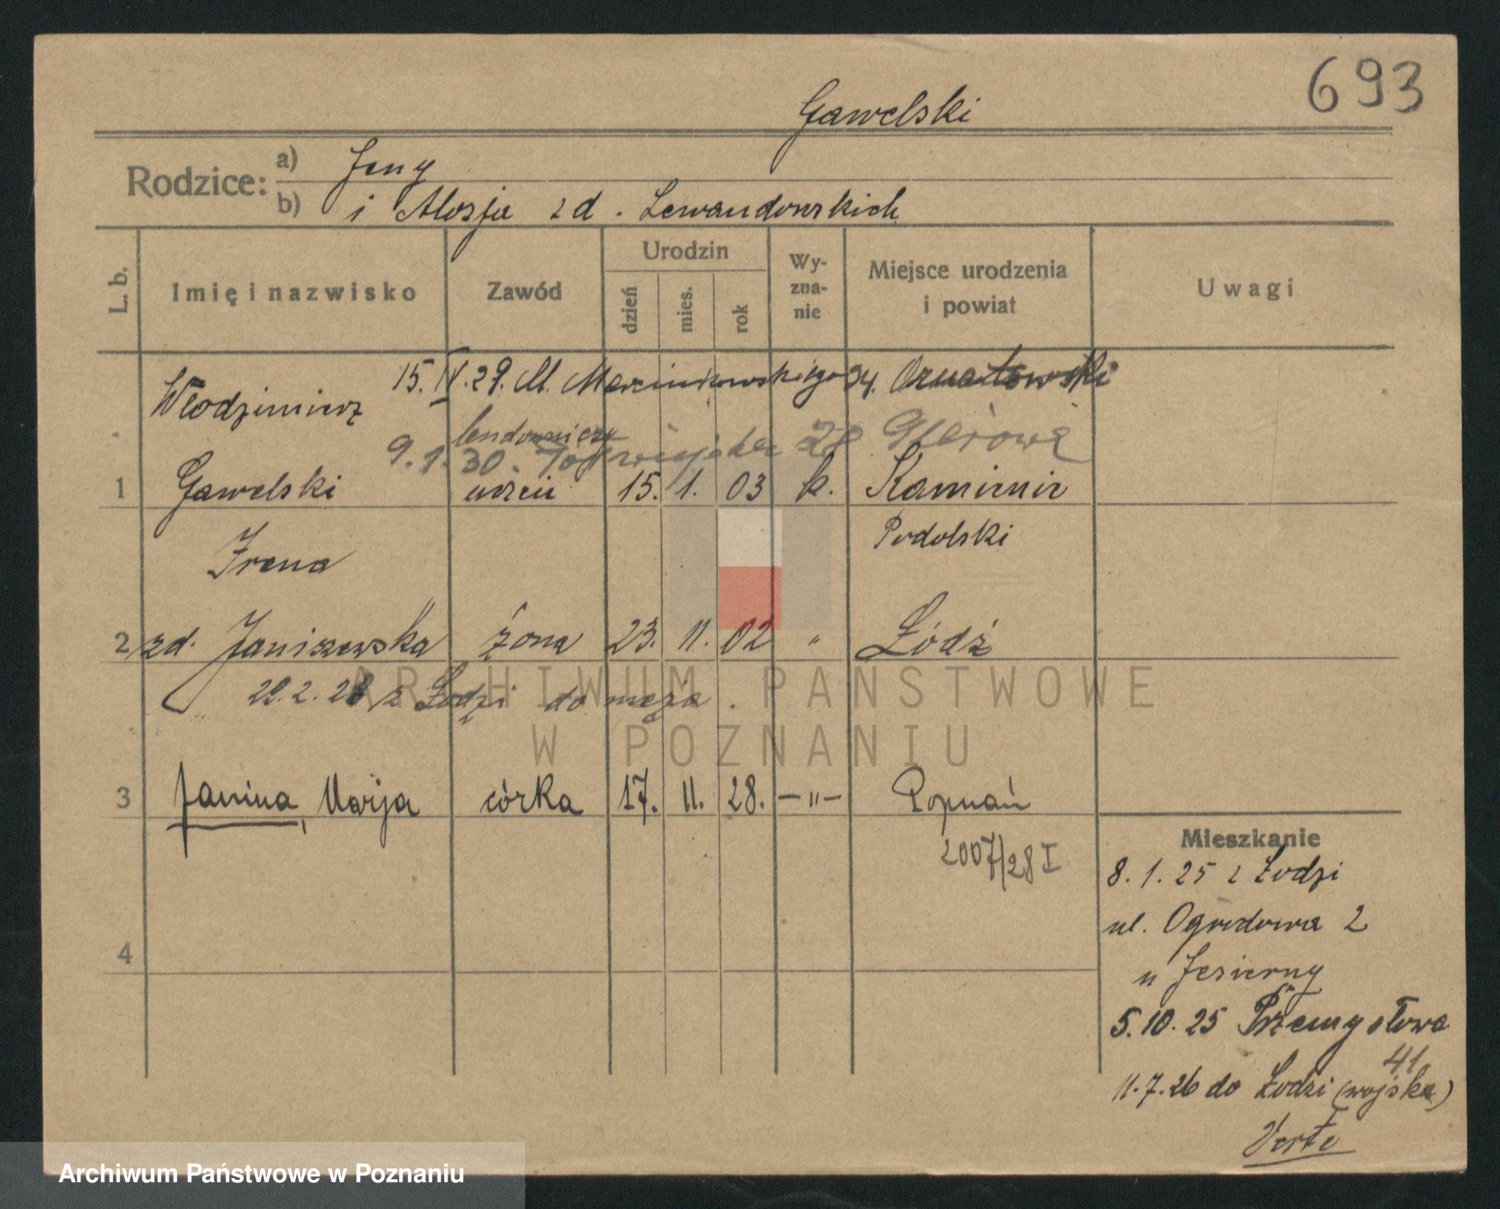 693
Gawelski
Rodzice: a) Jerzy
b) i Alozja z d. Lewandowskich
L. b.
Imię i nazwisko
Zawód
Urodzin
dzień
mies.
rok
Wy-
zna-
nie
Miejsce urodzenia
i powiat
Uwagi
15. IV. 29. M. Marcinkowskiego 34.
Włodzimierz
9.1.30. 28
1 Gawelski uczeń 15. 1. 03 k. Kamieniec
Podolski
Irena
2 zd. Janiszewska żona 23. 11. 02 " Łódź
29.2.28 z Łodzi do męża.
3 Janina, Marja córka 17. 11. 28. —"— Poznań
2007/28 I
4
Mieszkanie
8.1.25 z Łodzi
ul. Ogrodowa 2
u Jezierny
5.10.25 Przemysłowa
41
11.7.26 do Łodzi (wojska)
Verte
ARCHIWUM PAŃSTWOWE
W POZNANIU
Archiwum Państwowe w Poznaniu